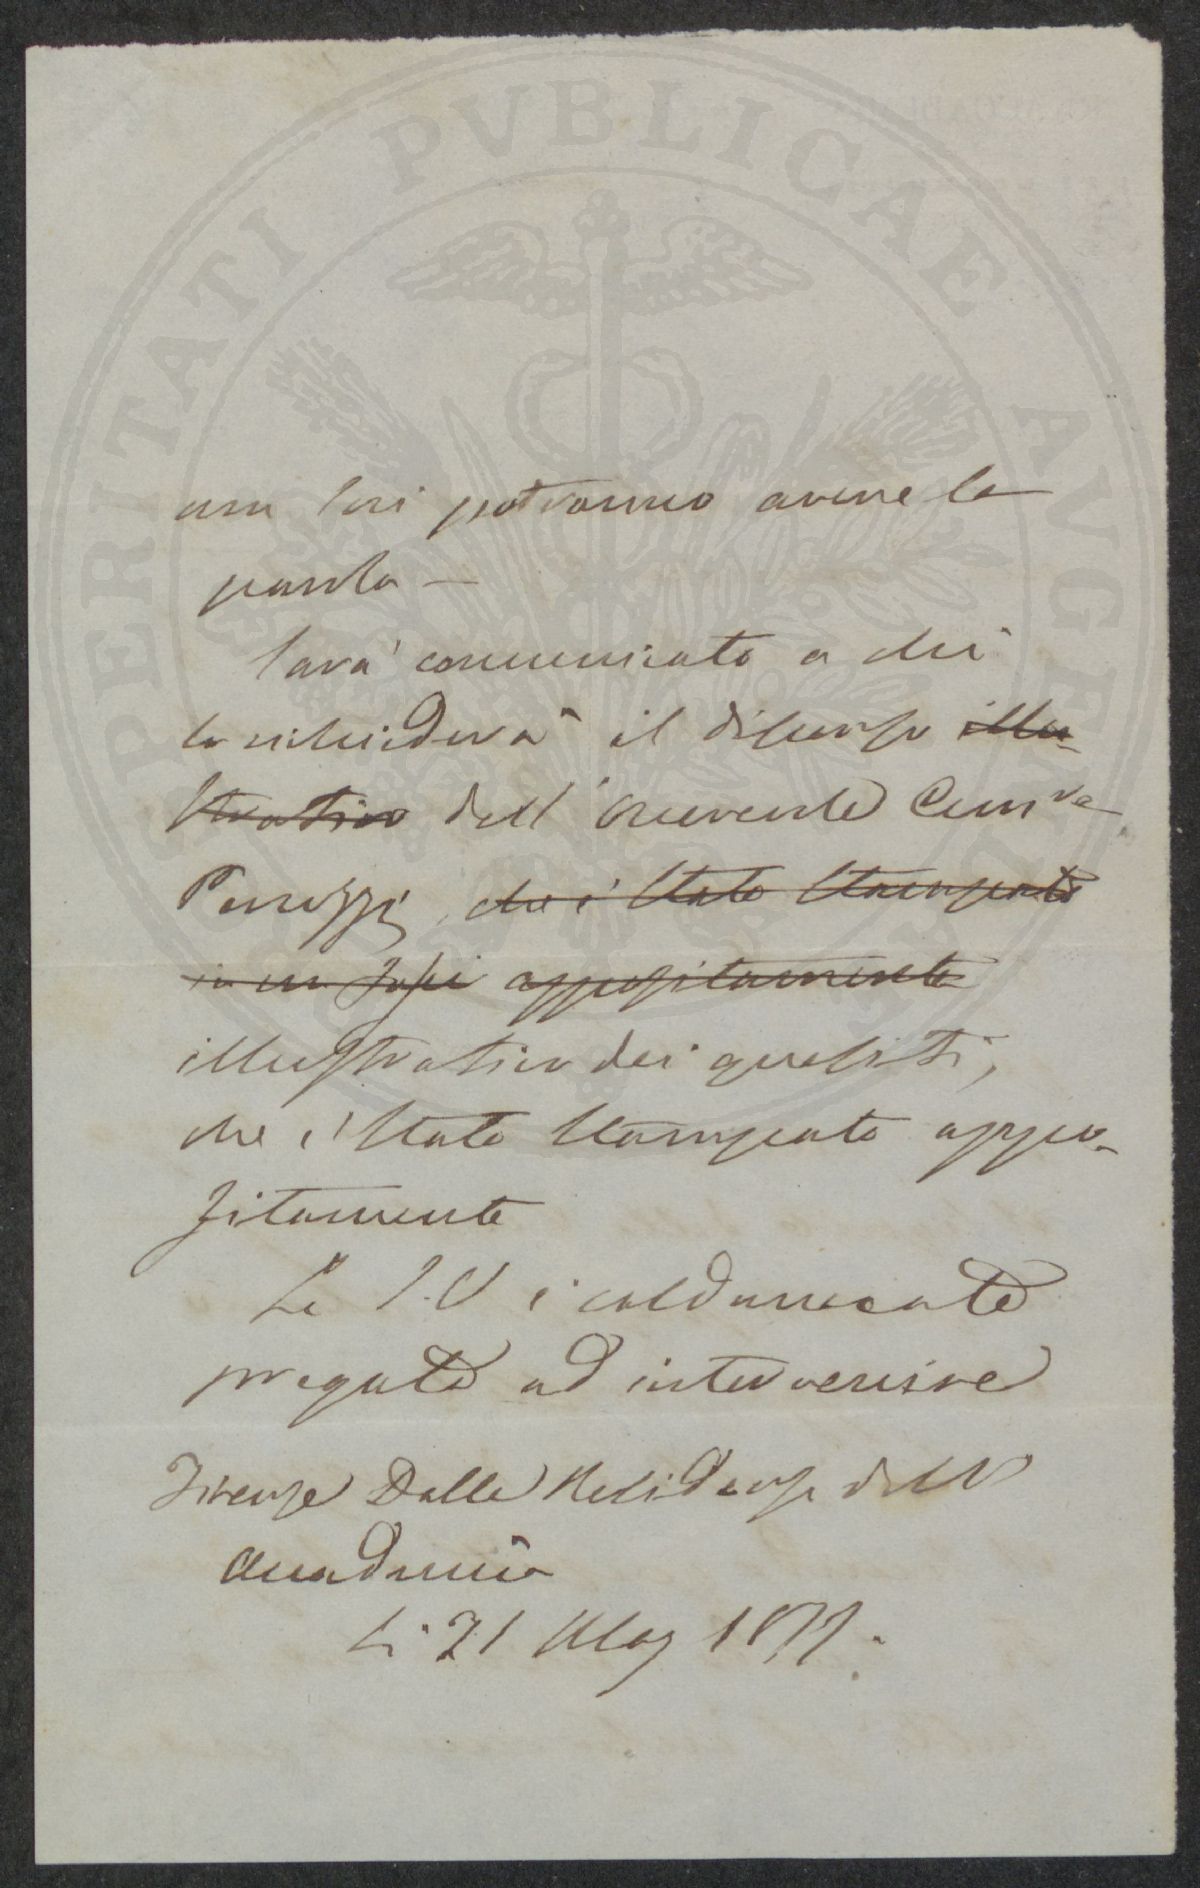 PROSPERITATI PVBLICAE AVGENDAE
non soci potranno avere la
parola —
Sarà comunicato a chi
lo richiederà il discorso illu-
strativo dell' onorevole Comm.re
Peruzzi, che è stato stampato
appositamente
illustrativo dei quesiti,
che è stato stampato appo-
sitamente
La S.V è caldamente
pregata ad intervenire
Firenze Dalla Residenza dell'
Accademia
Li 21 Mag 1877.